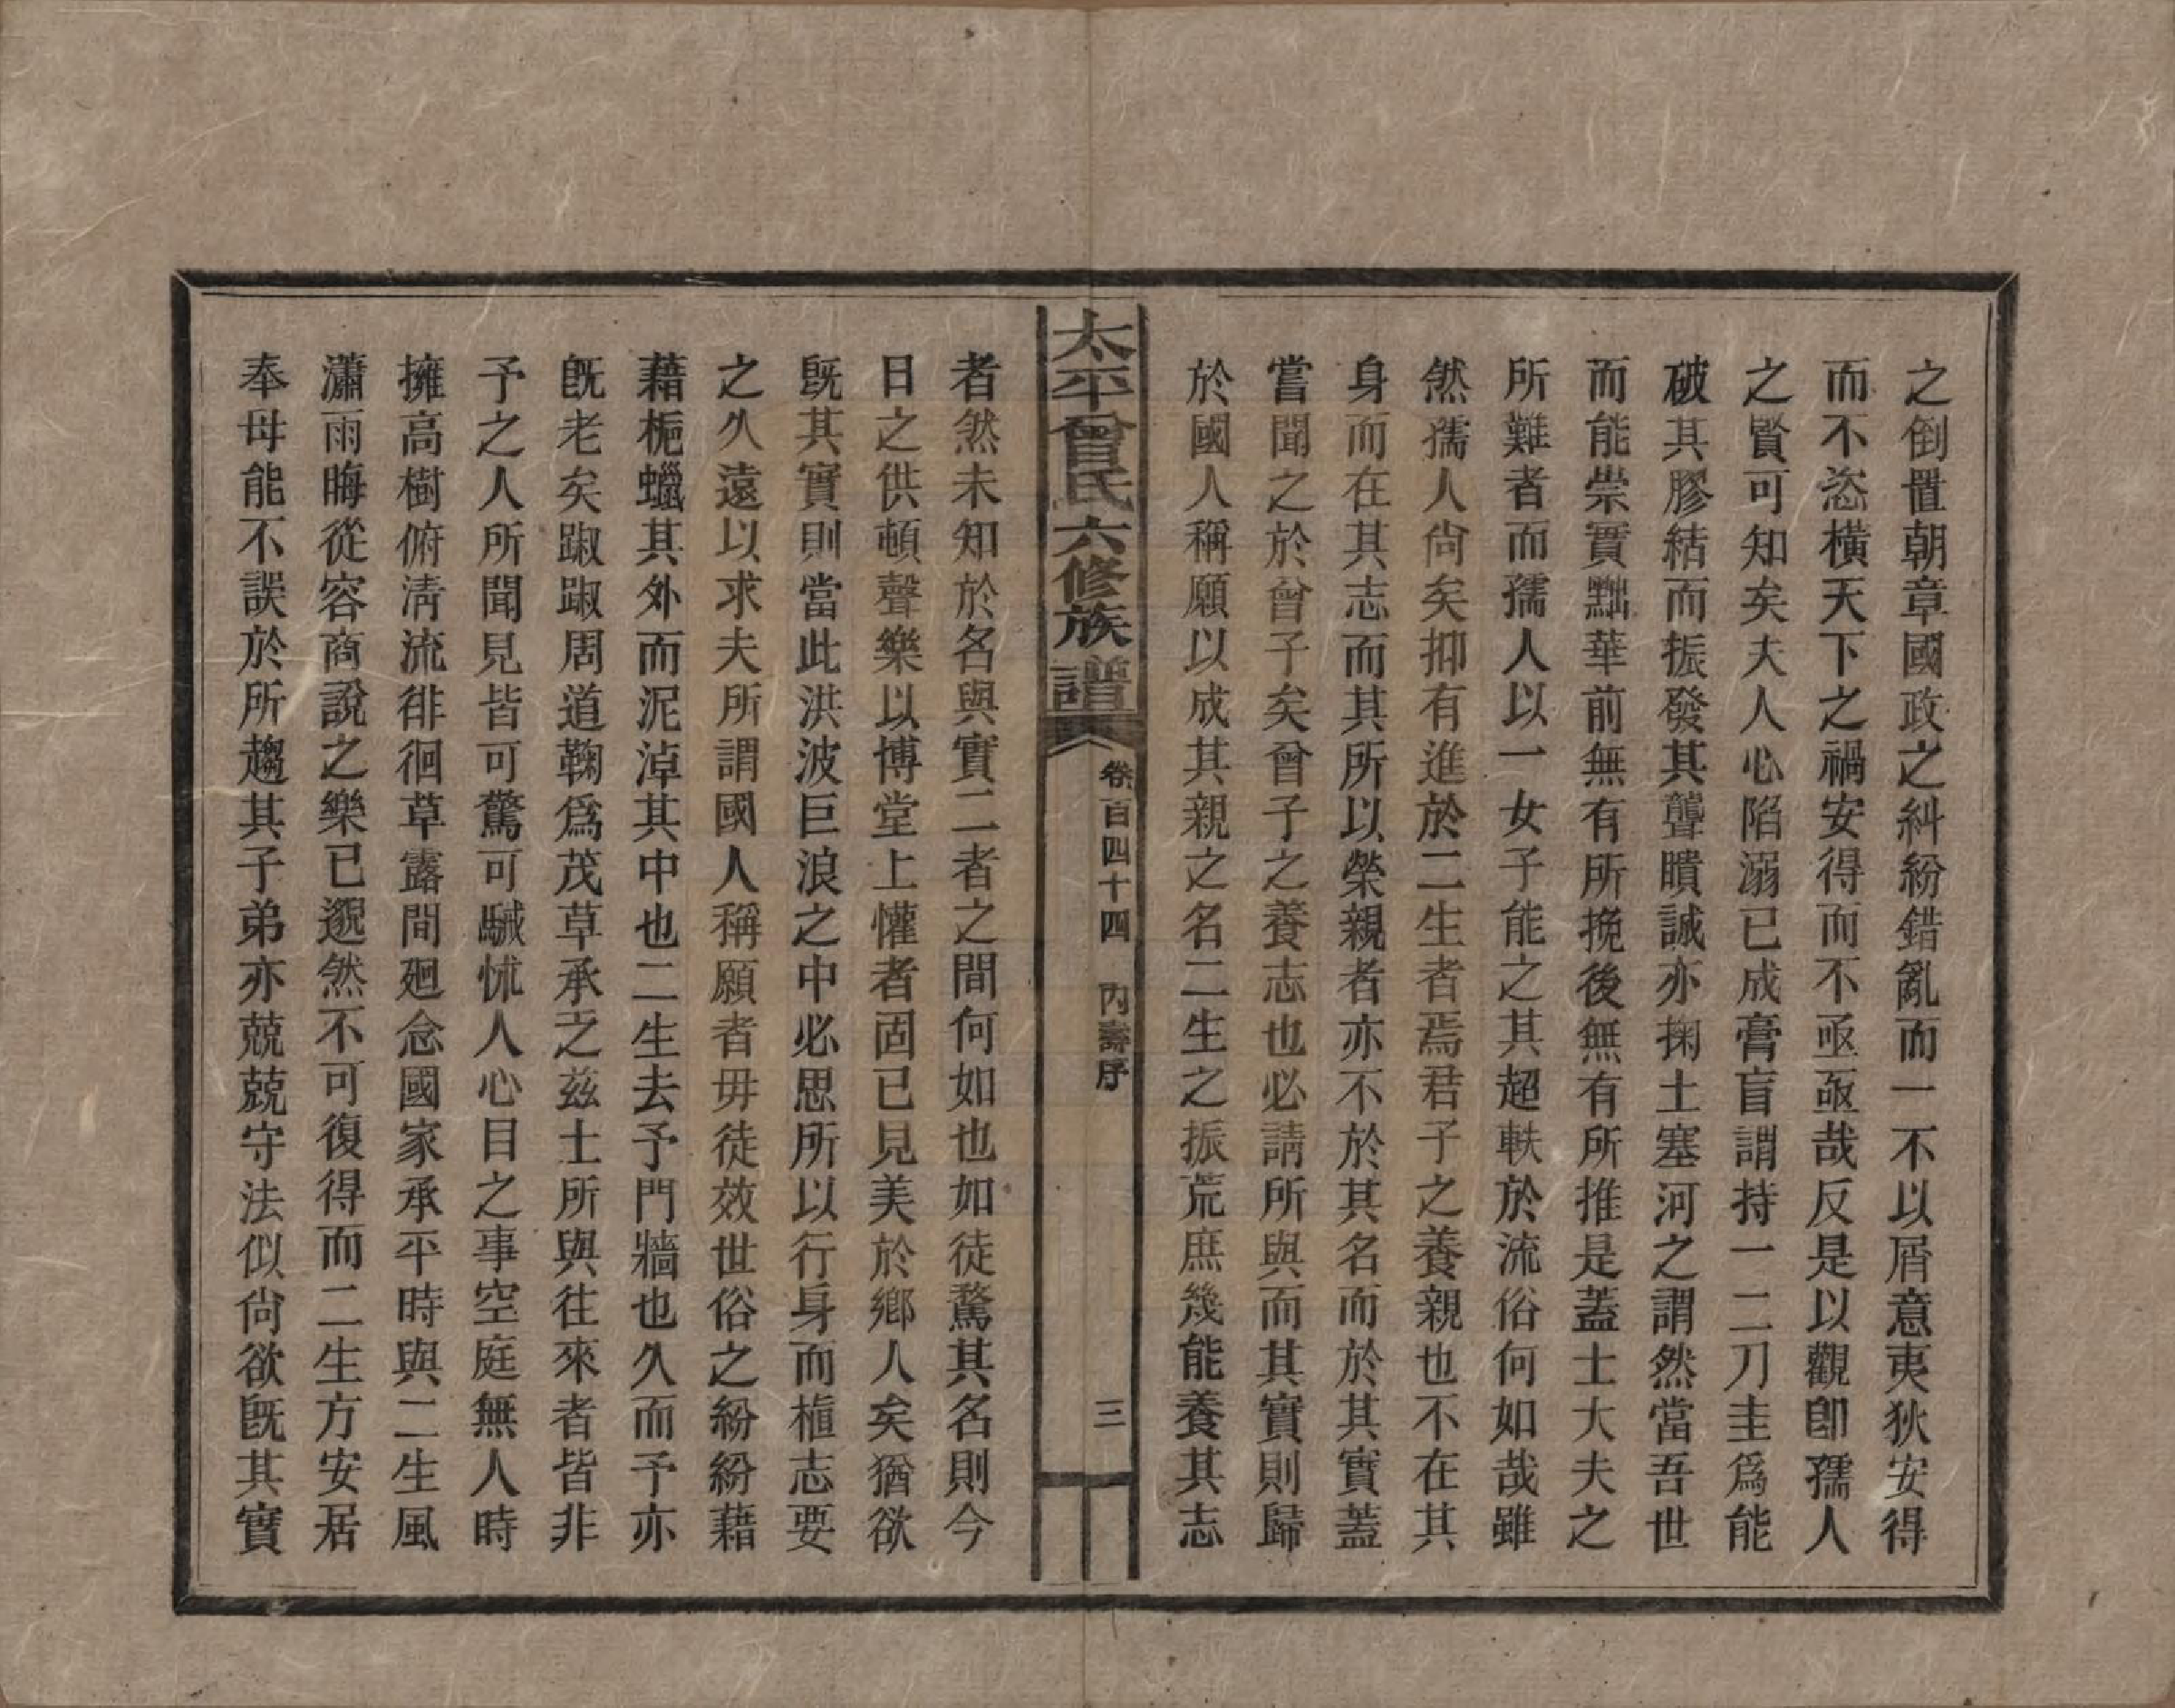 之倒置朝章國政之糾紛錯亂而一不以屑意夷狄安得
而不恣橫天下之禍安得而不亟亟哉反是以觀卽孺人
之賢可知矣夫人心陷溺已成膏盲謂持一二刀圭爲能
破其膠結而振發其聾瞶誠亦掬土塞河之謂然當吾世
而能崇實黜華前無有所挽後無有所推是蓋士大夫之
所難者而孺人以一女子能之其超軼於流俗何如哉雖
然孺人尙矣抑有進於二生者焉君子之養親也不在其
身而在其志而其所以榮親者亦不於其名而於其實蓋
嘗聞之於曾子矣曾子之養志也必請所與而其實則歸
於國人稱願以成其親之名二生之振荒庶幾能養其志
太平曾氏六修族譜 卷百四十四 內壽序 三
者然未知於名與實二者之間何如也如徒騖其名則今
日之供頓聲樂以博堂上懽者固已見美於鄉人矣猶欲
旣其實則當此洪波巨浪之中必思所以行身而植志要
之久遠以求夫所謂國人稱願者毋徒效世俗之紛紛藉
藉梔蠟其外而泥淖其中也二生去予門牆也久而予亦
旣老矣踧踧周道鞠爲茂草承乏茲土所與往來者皆非
予之人所聞見皆可驚可駴怵人心目之事空庭無人時
擁高樹俯淸流徘徊草露間廻念國家承平時與二生風
瀟雨晦從容商說之樂已邈然不可復得而二生方安居
奉母能不誤於所趨其子弟亦兢兢守法似尙欲旣其實